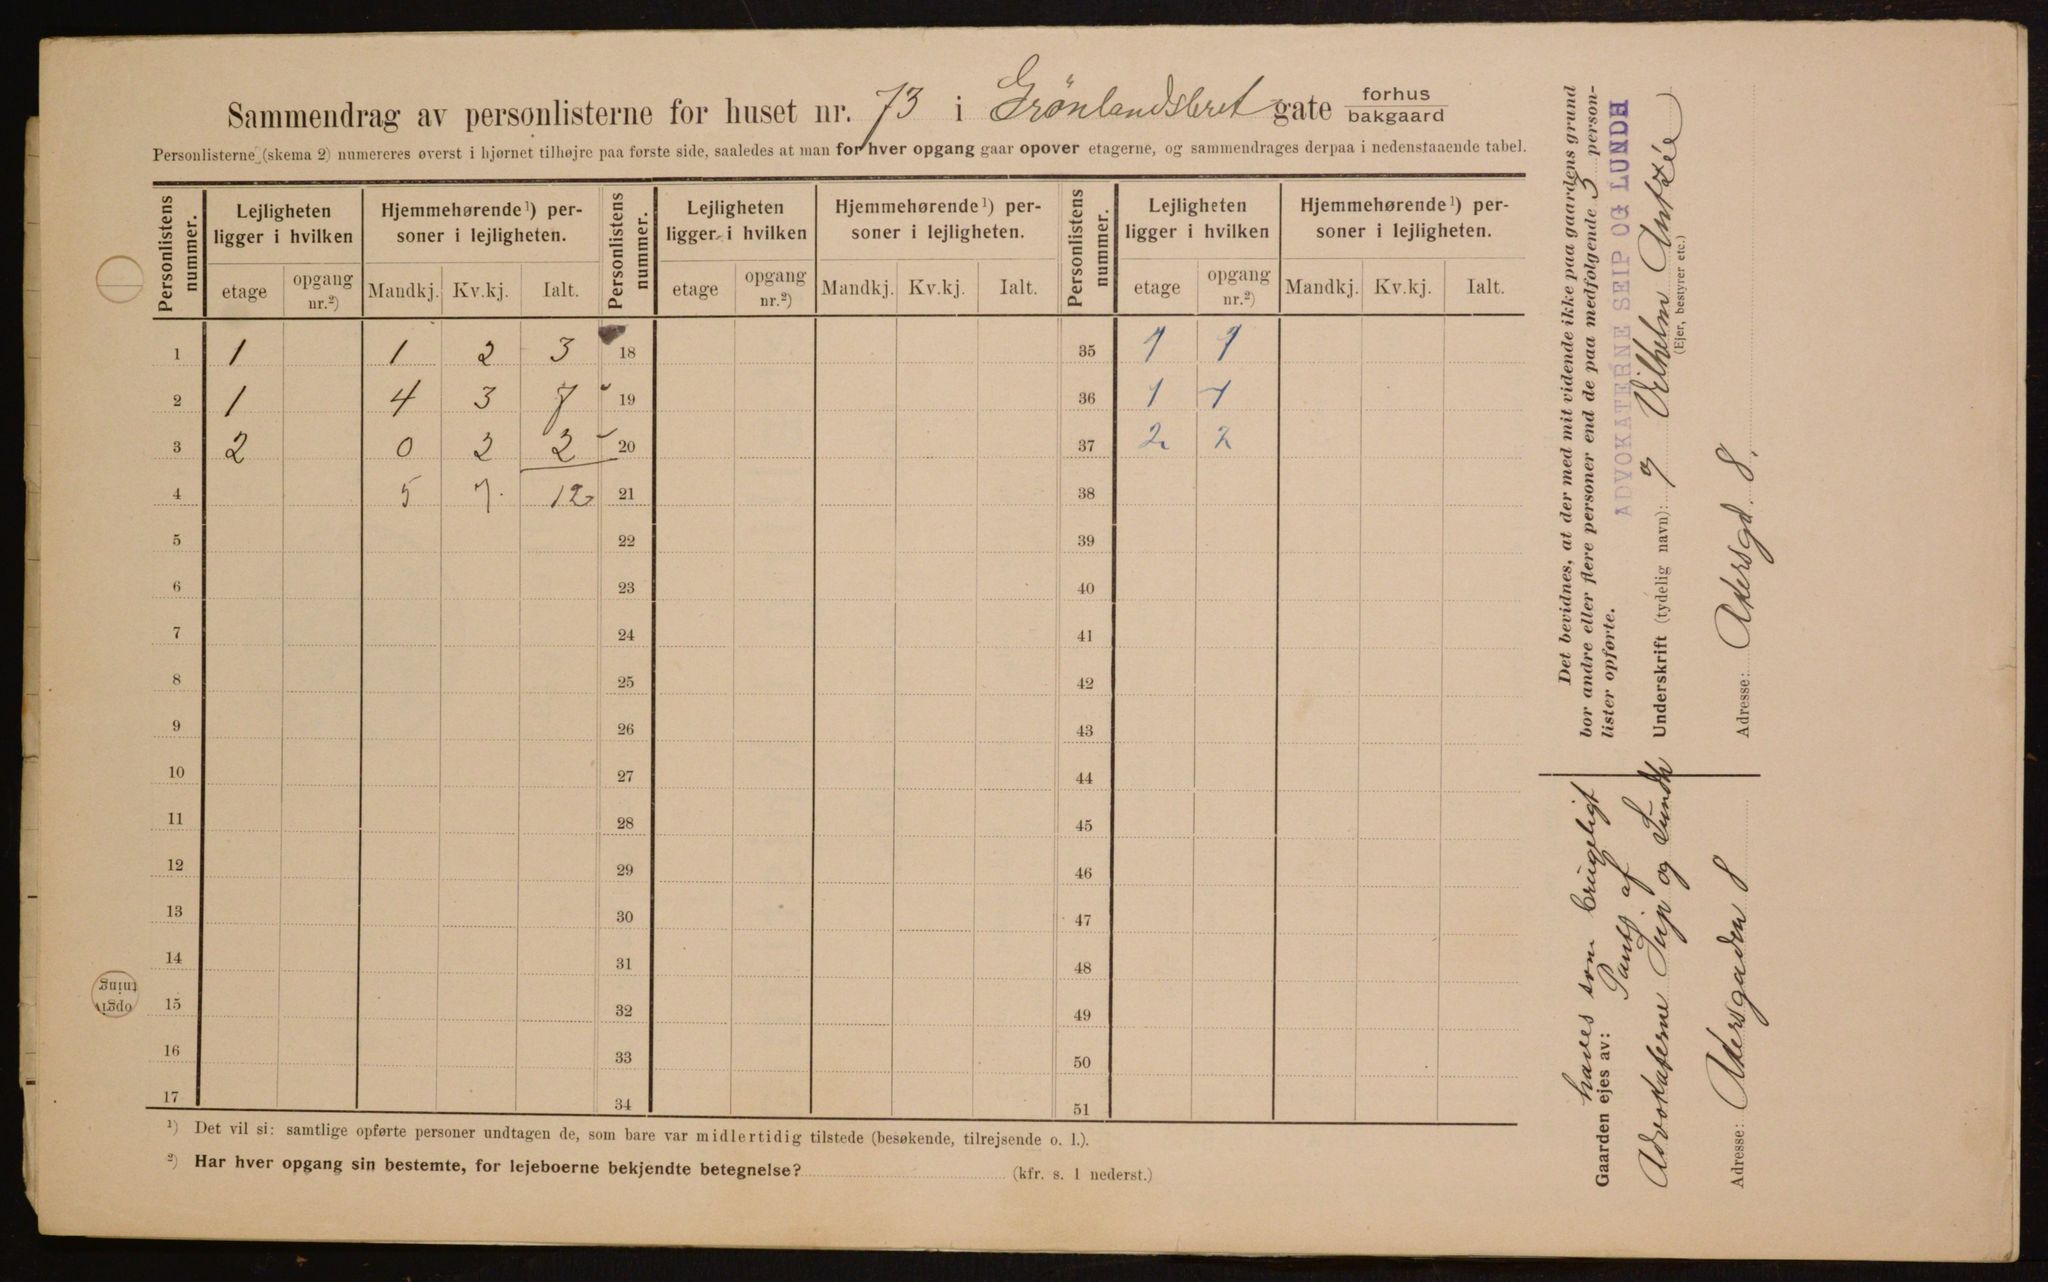 Sammendrag av personlisterne for huset nr. 73 i Grönlandsleret gate forhus bakgaard
Personlisterne (skema 2) numereres øverst i hjørnet tilhøjre paa første side, saaledes at man for hver opgang gaar opover etagerne, og sammendrages derpaa i nedenstaaende tabel.
Personlistens nummer. Lejligheten ligger i hvilken Hjemmehørende¹) personer i lejligheten. Personlistens nummer. Lejligheten ligger i hvilken Hjemmehørende¹) personer i lejligheten. Personlistens nummer. Lejligheten ligger i hvilken Hjemmehørende¹) personer i lejligheten.
etage opgang nr.²) Mandkj. Kv.kj. Ialt. etage opgang nr.²) Mandkj. Kv.kj. Ialt. etage opgang nr.²) Mandkj. Kv.kj. Ialt.
1 1 1 2 3 18 35 1 1
2 1 4 3 7 19 36 1 1
3 2 0 2 2 20 37 2 2
4 5 7 12 21 38
5 22 39
6 23 40
7 24 41
8 25 42
9 26 43
10 27 44
11 28 45
12 29 46
13 30 47
14 31 48
15 32 49
16 33 50
17 34 51
¹) Det vil si: samtlige opførte personer undtagen de, som bare var midlertidig tilstede (besøkende, tilrejsende o. l.).
²) Har hver opgang sin bestemte, for lejeboerne bekjendte betegnelse? (kfr. s. 1 nederst.)
Det bevidnes, at der med mit vidende ikke paa gaardens grund
bor andre eller flere personer end de paa medfølgende 3 person-
lister opførte.
ADVOKATERNE SEIP OG LUNDH
Underskrift (tydelig navn): Vilhelm
(Ejer, bestyrer etc.)
Adresse: Akersgd. 8.
haves som brugeligt
Gaarden ejes av: Pant af
Advokaterne Seip og Lundh
Adresse: Akersgaden 8